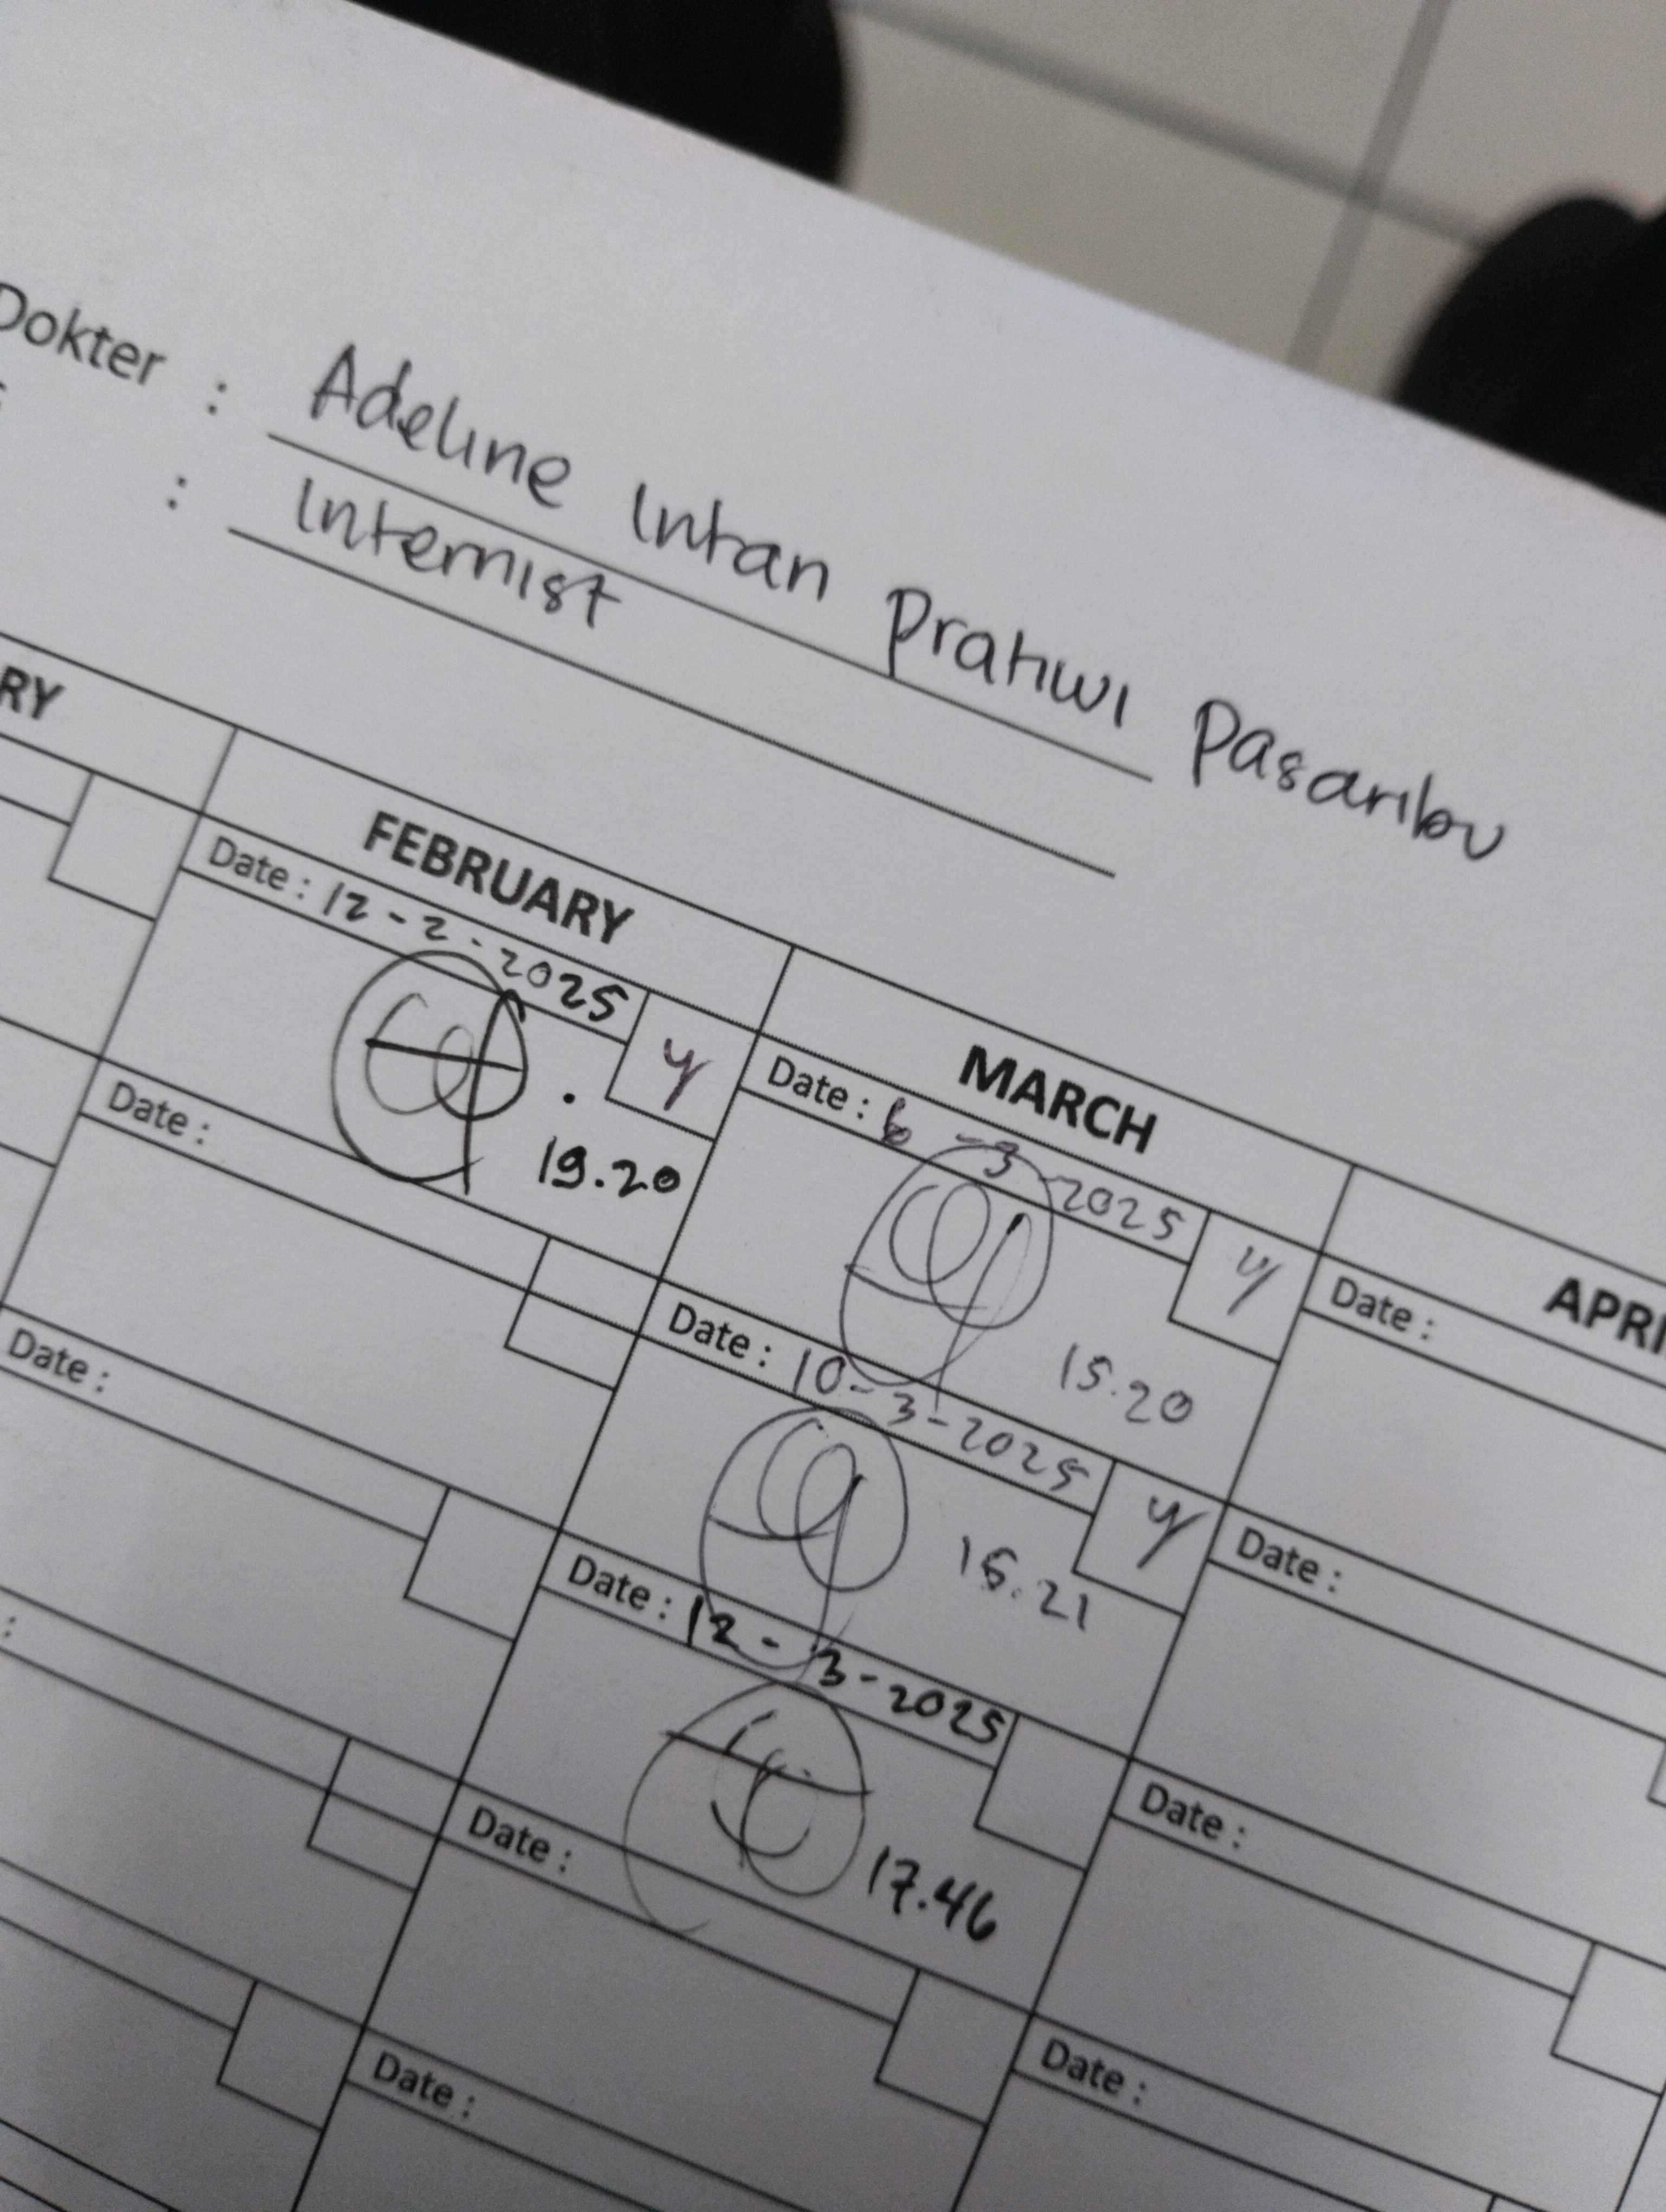 Dokter : Adeline Intan Pratiwi Pasaribu
: Internist
RY
FEBRUARY
MARCH
APRI
Date : 12-2-2025 y
19.20
Date : 6-3-2025 y
15.20
Date :
Date :
Date : 10-3-2025 y
15.21
Date :
Date :
Date : 12-3-2025
17.46
Date :
:
Date :
Date :
Date :